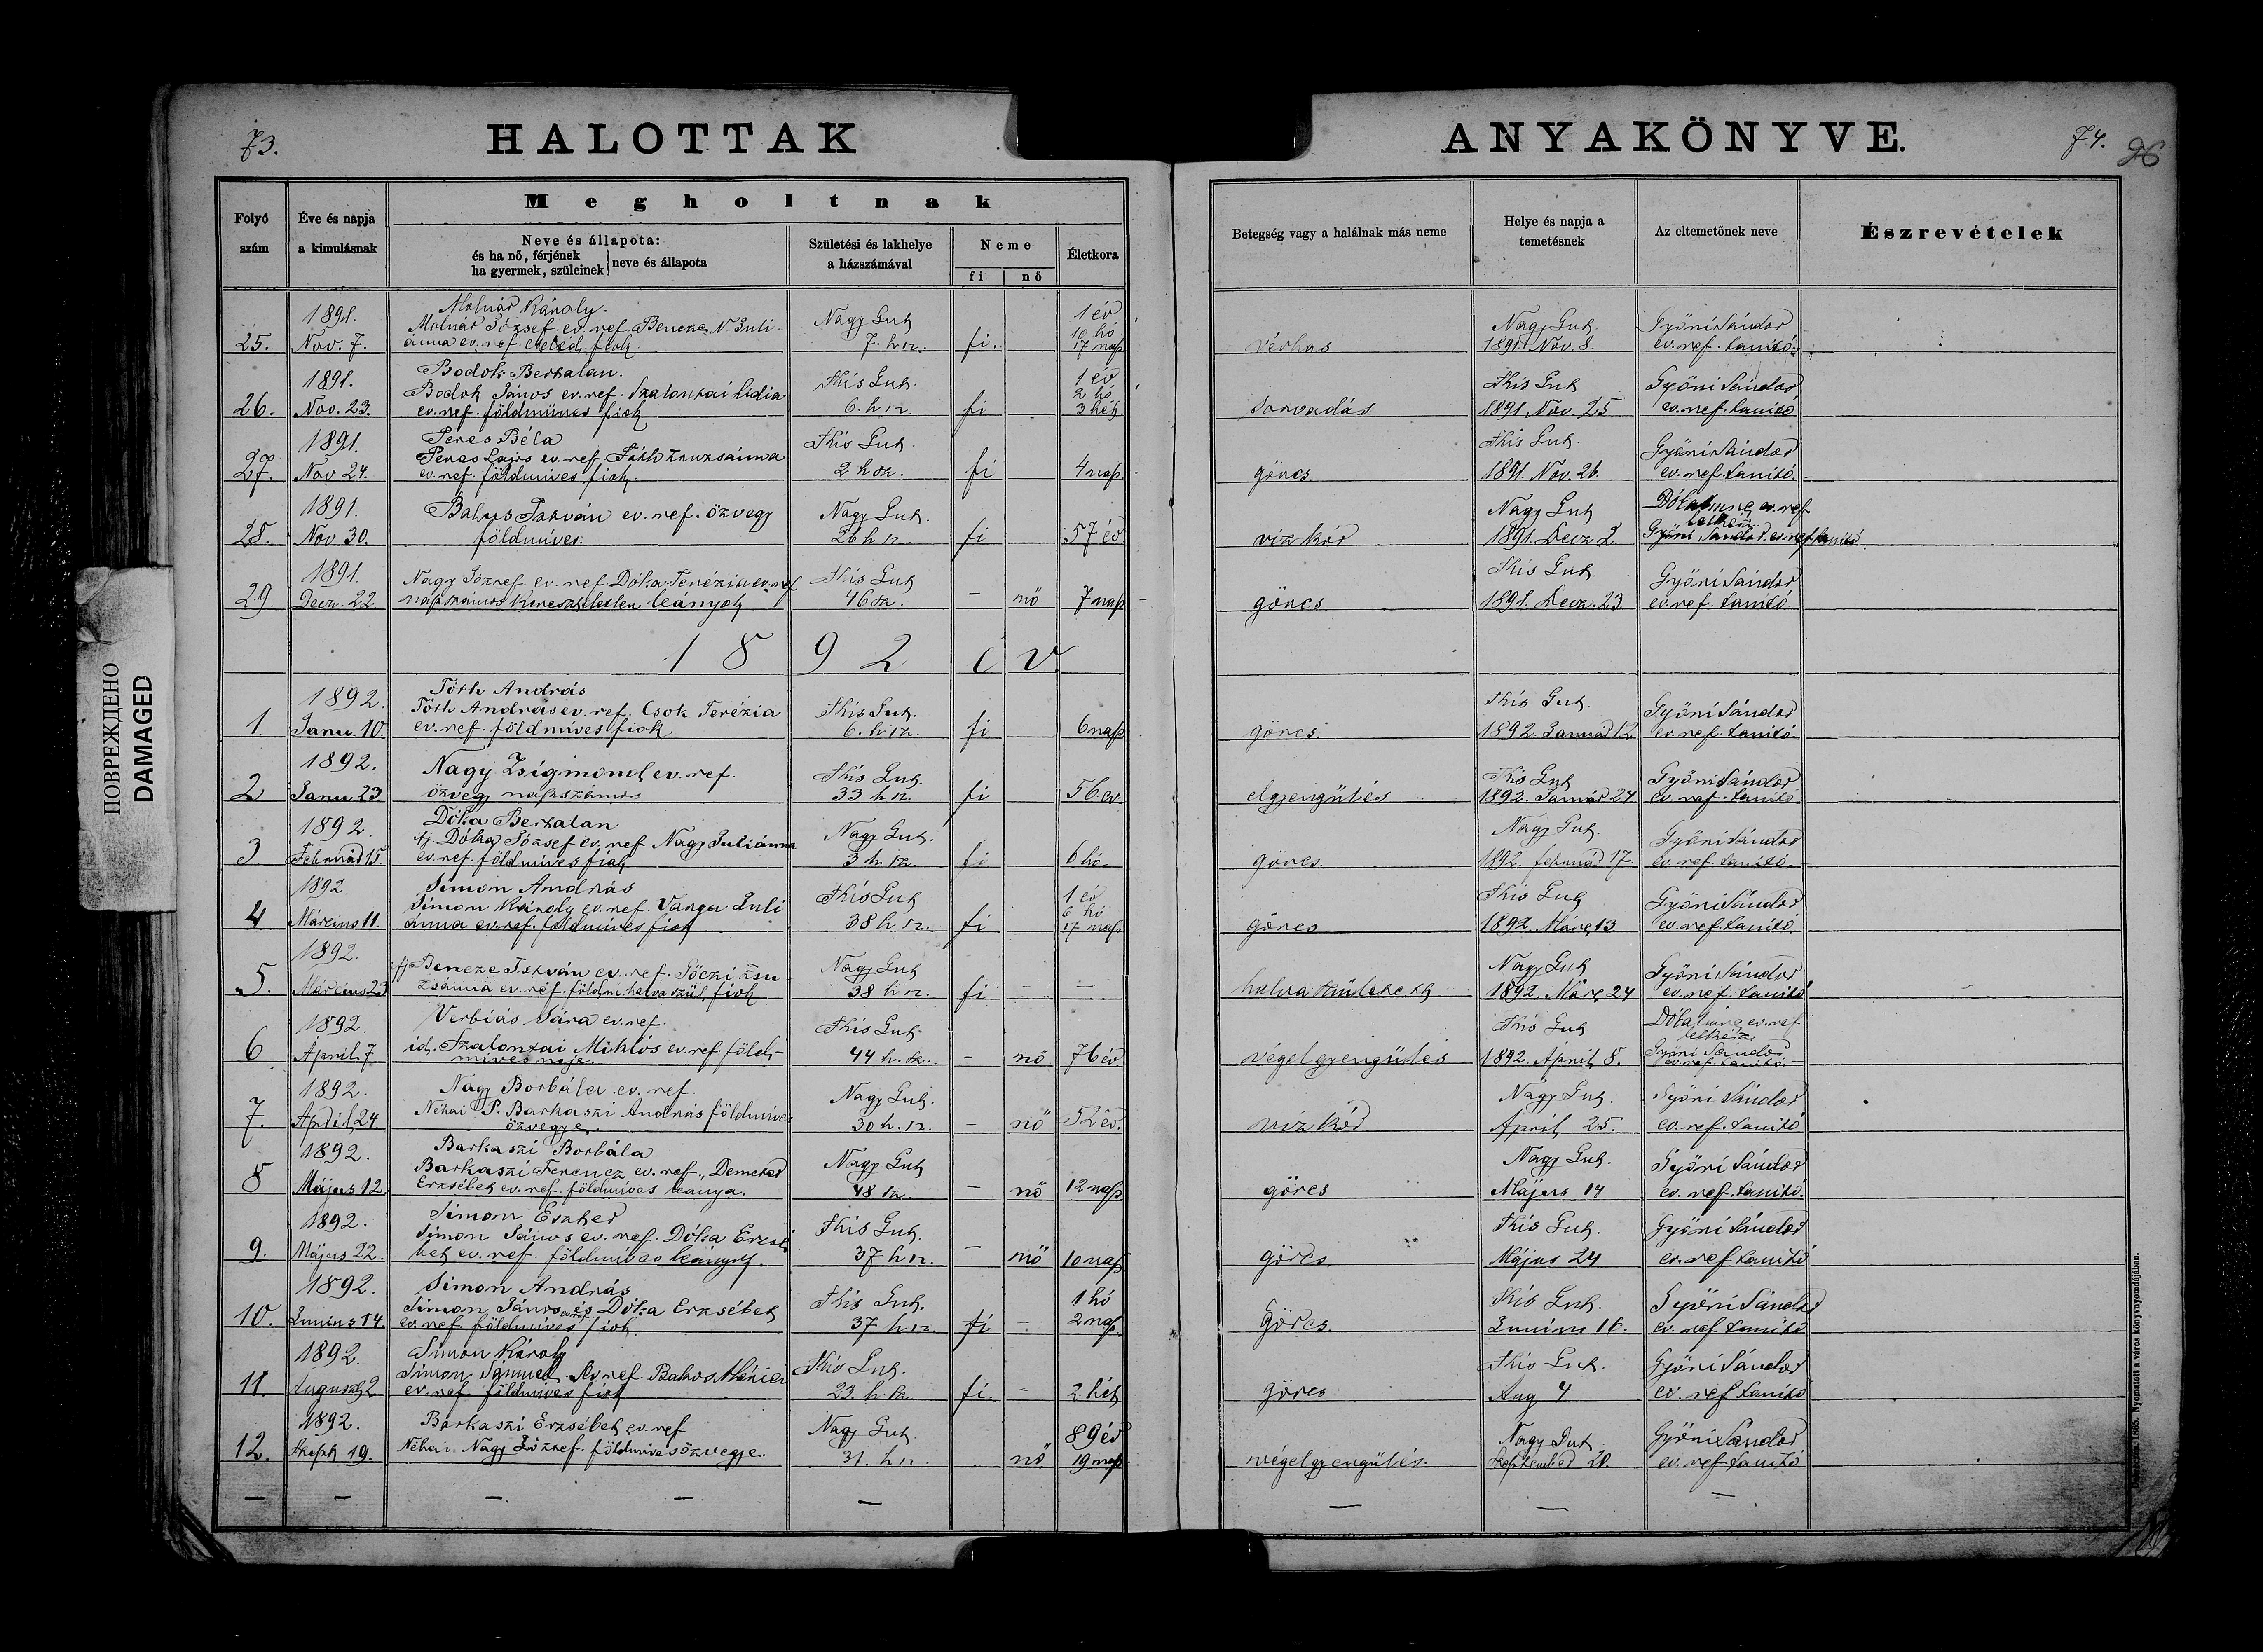 73.
HALOTTAK
ANYAKÖNYVE.
74.
26
Folyó szám
Éve és napja a kimulásnak
Megholtnak
Neve és állapota:
és ha nő, férjének
ha gyermek, szüleinek
neve és állapota
Születési és lakhelye a házszámával
Neme
fi
nő
Életkora
Betegség vagy a halálnak más neme
Helye és napja a temetésnek
Az eltemetőnek neve
Észrevételek
1891.
Molnár Károly.
Nagy Gut
1 év
Molnár József ev. ref. Bencze N Juli-
10 hó
25. Nov. 7.
ánna ev. ref. cseléd fiok
7. h sz.
fi.
17 nap
vérhas
Nagy Gut.
1891. Nov. 8.
Győri Sándor
ev. ref. tanító
1891.
Bodok Bertalan.
Kis Gut.
1 év
Bodok János ev. ref. Szalontai Lidia
2 hó
26. Nov. 23.
ev. ref. földműves fiok
6. h sz.
fi
3 hét
sorvadás
Kis Gut
1891 Nov. 25
Győri Sándor
ev. ref. tanító
1891.
Peres Béla
Kis Gut
Peres Lajos ev. ref. Tóth Zsuzsánna
27. Nov 24.
ev. ref. földmives fiok.
2 h sz.
fi
4 nap.
görcs.
Kis Gut.
1891. Nov. 26.
Győri Sándor
ev. ref. tanító.
1891.
Balus István ev. ref. özvegy
Nagy Gut.
28. Nov 30.
földmives.
26 h sz.
fi
57 év
viz kór
Nagy Gut
1891. Decz 2
Dóka Imre ev. ref
lelkész
Győri Sándor ev. ref tanító.
1891.
Nagy József ev. ref. Dóka Terézia ev. ref
Kis Gut
29. Decz. 22.
napszámos kereszteletlen leányok
46 sz.
nő
7 nap
görcs
Kis Gut.
1891. Decz. 23
Győri Sándor
ev. ref. tanító
1892 év
1892.
Tóth András
Kis Gut.
Tóth András ev. ref. Csok Terézia
1. Janu. 10.
ev. ref. földmives fiok
6. h sz.
fi
6 nap
görcs.
Kis Gut.
1892. Január 12
Győri Sándor
ev. ref. tanító.
1892.
Nagy Zsigmond ev. ref.
Kis Gut.
2 Janu 23
özvegy napszámos
33 h sz.
fi
56 év.
elgyengülés
Kis Gut
1892. Január 24
Győri Sándor
ev. ref. tanító
1892.
Dóka Bertalan
Nagy Gut.
ifj. Dóka József ev. ref Nagy Juliánna
3 Február 15.
ev. ref. földmives fiok
3 h sz.
fi
6 hó.
görcs.
Nagy Gut.
1892. február 17.
Győri Sándor
ev. ref. tanító.
1892.
Simon András
Kis Gut
1 év
Simon Károly ev. ref. Varga Juli
6 hó
4 Márczius 11.
ánna ev. ref. földmives fiok
38 h sz.
fi
17 nap
görcs
Kis Gut
1892. Márc 13
Győri Sándor
ev. ref. tanító.
1892.
ifj Bencze István ev. ref. Gőczi Zsu-
Nagy Gut
5. Márczius 23
zsánna ev. ref. földm. halva szül. fiok
38 h sz.
fi
halva született
Nagy Gut
1892. Márc 24
Győri Sándor
ev. ref. tanító
1892.
Verbiás Sára ev. ref.
Kis Gut
6 April. 7
id. Szalontai Miklós ev. ref. föld-
mives neje
44 h. sz.
nő
76 év
végelgyengülés
Kis Gut
1892. April 8.
Dóka Imre ev. ref
lelkész
Győri Sándor
ev. ref. tanító.
1892.
Nagy Borbála ev. ref.
Nagy Gut.
7. April 24
Néhai P. Barkaszi András földmives
özvegye.
30 h. sz.
nő
52 év.
viz kór
Nagy Gut.
April 25.
Győri Sándor
ev. ref. tanító
1892.
Barkaszi Borbála
Nagy Gut
Barkaszi Ferencz ev. ref., Demeter
8 Május 12.
Erzsébet ev. ref. földmives leánya.
48 sz.
nő
12 nap
görcs
Nagy Gut.
Május 14
Győri Sándor
ev. ref. tanító.
1892.
Simon Eszter
Kis Gut.
Simon János ev. ref. Dóka Erzsé
9. Május 22.
bet ev. ref. földmives leányok.
37 h sz.
nő
10 nap
görcs.
Kis Gut.
Május 24
Győri Sándor
ev. ref tanító
1892.
Simon András
Kis Gut.
1 hó
Simon János és Dóka Erzsébet
10. Junius 14.
ev. ref földmives fiok.
37 h sz.
fi
2 nap.
Görcs.
Kis Gut.
Junius 16.
Győri Sándor
ev. ref tanító
1892.
Simon Károly
Kis Gut.
Simon Sámuel ev. ref. Balus Mária
11 Auguszt 2
ev. ref földmives fiok
23. h. sz.
fi.
2 hét
görcs
Kis Gut.
Aug 4
Győri Sándor
ev. ref tanító
1892.
Barkaszi Erzsébet ev. ref
Nagy Gut
89 év
12. Szept 19.
Néhai Nagy József földmives özvegye.
31. h sz
nő
19 nap
végelgyengülés.
Nagy Gut
Szeptember 20.
Győri Sándor
ev. ref tanító
ПОВРЕЖДЕНО
DAMAGED
1885. Nyomatott a város könyvnyomdájában.